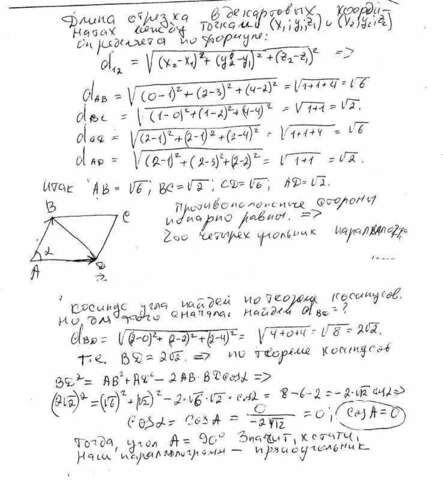 Длина отрезка в декартовых коорди-
натах между точками (x₁; y₁; z₁) и (x₂; y₂; z₂)
определяется по формуле:
d₁₂ = √((x₂-x₁)² + (y₂-y₁)² + (z₂-z₁)²) =>
d_AB = √((0-1)² + (2-3)² + (4-2)²) = √(1+1+4) = √6
d_BC = √((1-0)² + (1-2)² + (4-4)²) = √(1+1) = √2.
d_CD = √((2-1)² + (2-1)² + (2-4)²) = √(1+1+4) = √6
d_AD = √((2-1)² + (2-3)² + (2-2)²) = √(1+1) = √2.
Итак AB = √6; BC = √2; CD = √6; AD = √2.
Противоположные стороны
попарно равны. =>
B
C
A
α
D
четырехугольник
.....
Косинус угла найдем по теореме косинусов.
Но для этого сначала найдем =?
d_BD = √((2-0)² + (2-2)² + (2-4)²) = √(4+0+4) = √8 = 2√2.
т.е. BD = 2√2. => по теореме косинусов
BD² = AB² + AD² - 2AB·BDcosα =>
(2√2)² = (√6)² + (√2)² - 2·√6·√2·cosα = 8-6-2 = -2·√12 cosα =>
cosα = cosA = 0/(-2√12) = 0; cosA = 0
Тогда угол A = 90° Значит, кстати,
наш параллелограмм - прямоугольник